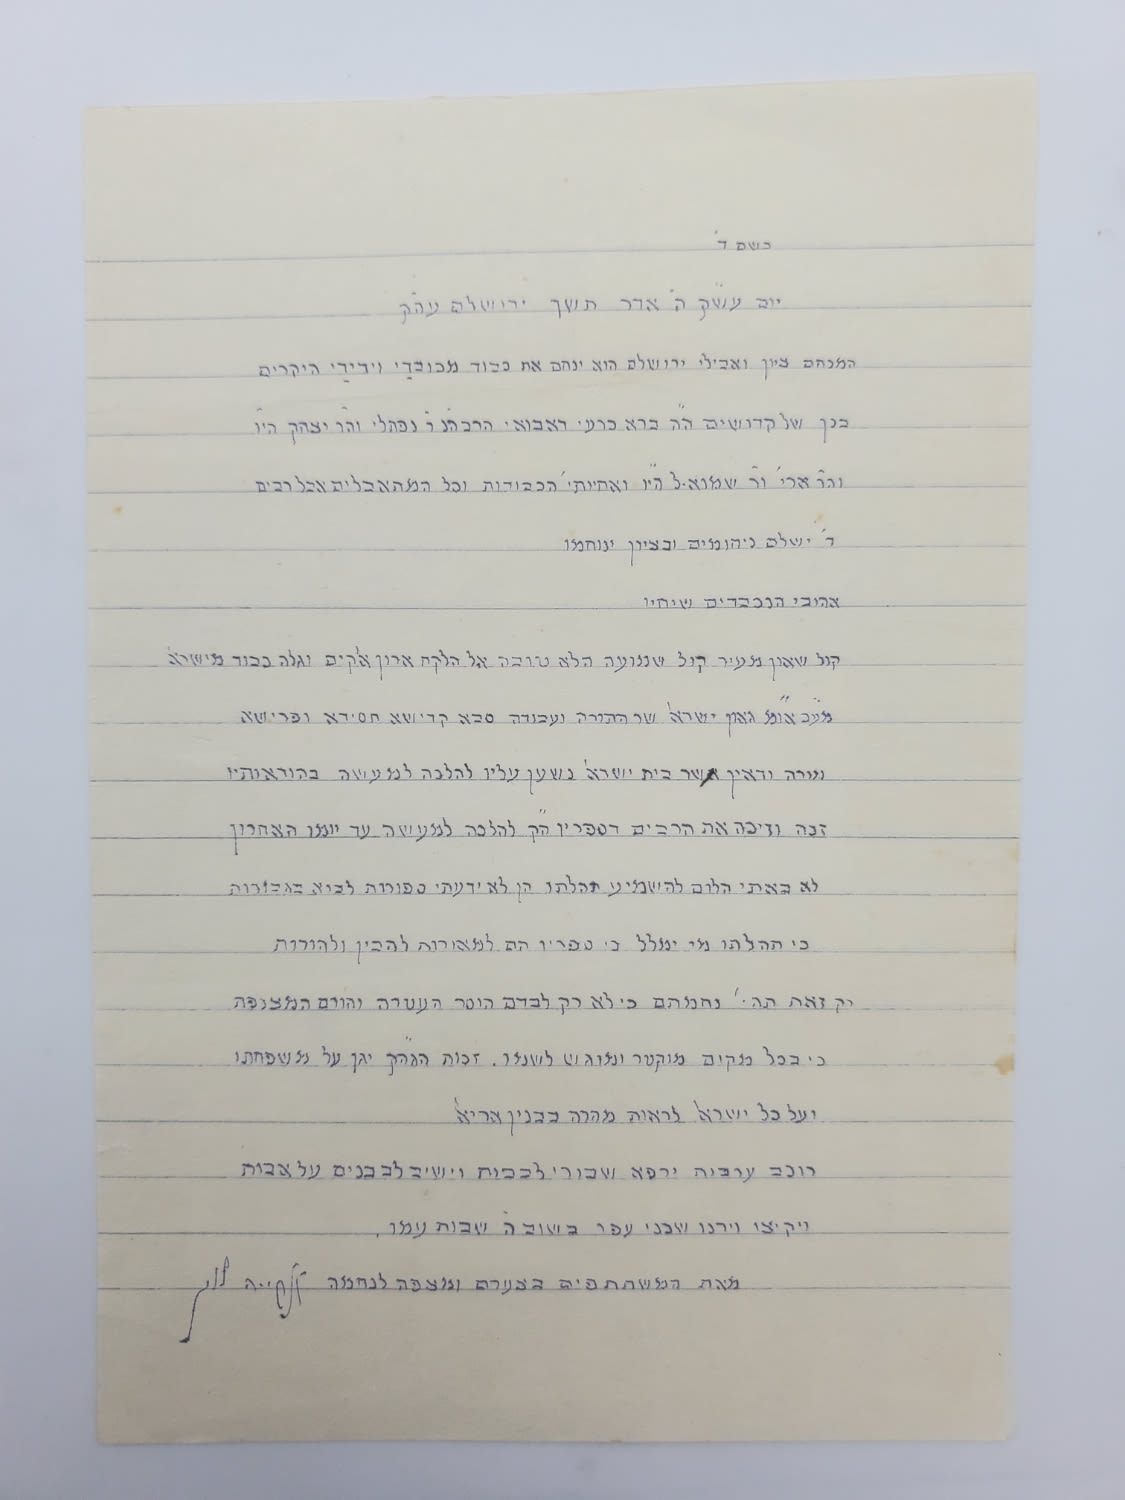 בשם ד'
יום עש"ק ה' אדר תשך ירושלם עה"ק
המנחם ציון ואבילי ירושלם הוא ינחם את כבוד מכובדַי וידידַי היקרים
בנן של קדושים ה"ה ברא כרעי דאבוא הרבה"ג ר' נפתלי והר' יצחק הי"ו
והר' ארי' ור' שמוא-ל הי"ו ואחיותי' הכבודות וכל המתאבלים אבל רבים
ד' ישלם ניחומים ובציון ינוחמו
אהובי הנכבדים שיחיו
קול שאון מעיר קול שמועה הלא טובה אל הלקח ארון אלקים וגלה כבוד מישרא'
גאון ישרא' שר התורה ועבודה סבא קדישא חסידא ופרישא
מורה ודאין אשר בית ישרא' נשען עליו להלכה למעשה בהוראותיו
זכה וזיכה את הרבים בספריו הק' להלכה למעשה עד יומו האחרון
לא באתי הלום להשמיע תהלתו הן לא ידעתי ספורות לבוא בגבורות
כי תהלתו מי ימלל כי ספריו הם למאורות להבין ולהורות
רק זאת תהי' נחמתם כי לא רק לבדם הוסר העטרה והורם המצנפת
כי בכל מקום מוקטר ומוגש לשמו. זכות הגה"ק יגן על משפחתו
ועל כל ישרא' לראות מהרה בבנין אריא'
רוכב ערבות ירפא שבורי לבבות וישיב לב בנים על אבות
ויקיצו וירנו שכני עפר בשוב ה' שבות עמו.
מאת המשתתפים בצערם ומצפה לנחמה